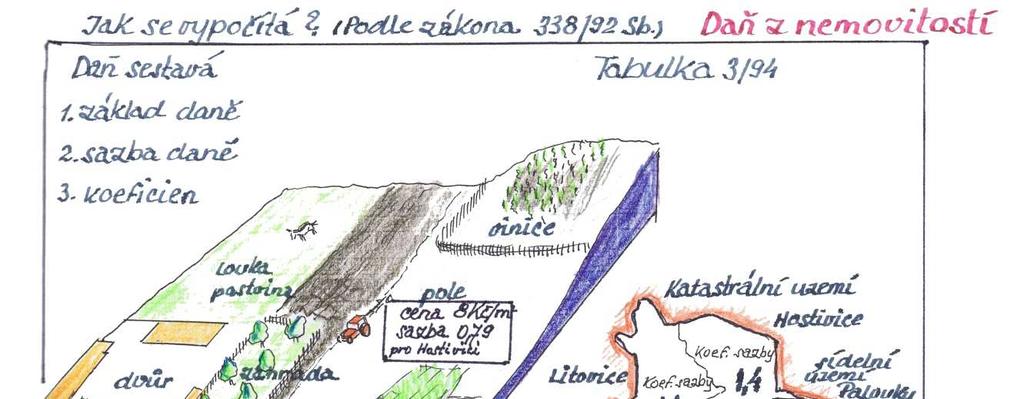 Jak se vypočítá ? (Podle zákona 338/92 Sb.)
Daň z nemovitostí
Daň sestavá
Tabulka 3/94
1. základ daně
2. sazba daně
3. koeficien
vinice
louka
pastvina
pole
cena 8Kč/m²
sazba 0,79
pro Hostivici
dvůr
zahrada
Katastrální uzemí
Hostivice
Koef. sazby
1,4
Litovice
Koef. sazby
sídelní
území
Palouky